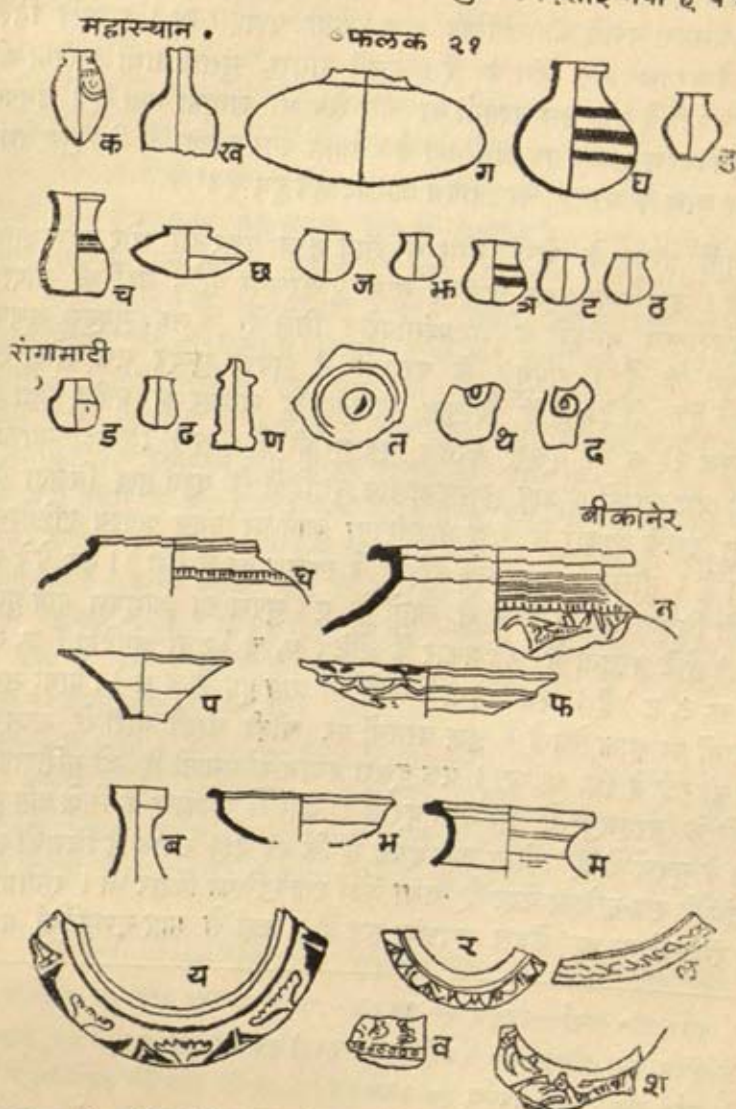 महास्थान . फलक २१
क ख ग घ ङ
च छ ज झ ञ ट ठ
रांगामाटी
ड ढ ण त थ द
बीकानेर
घ न
प फ
ब भ म
य र ल
व श